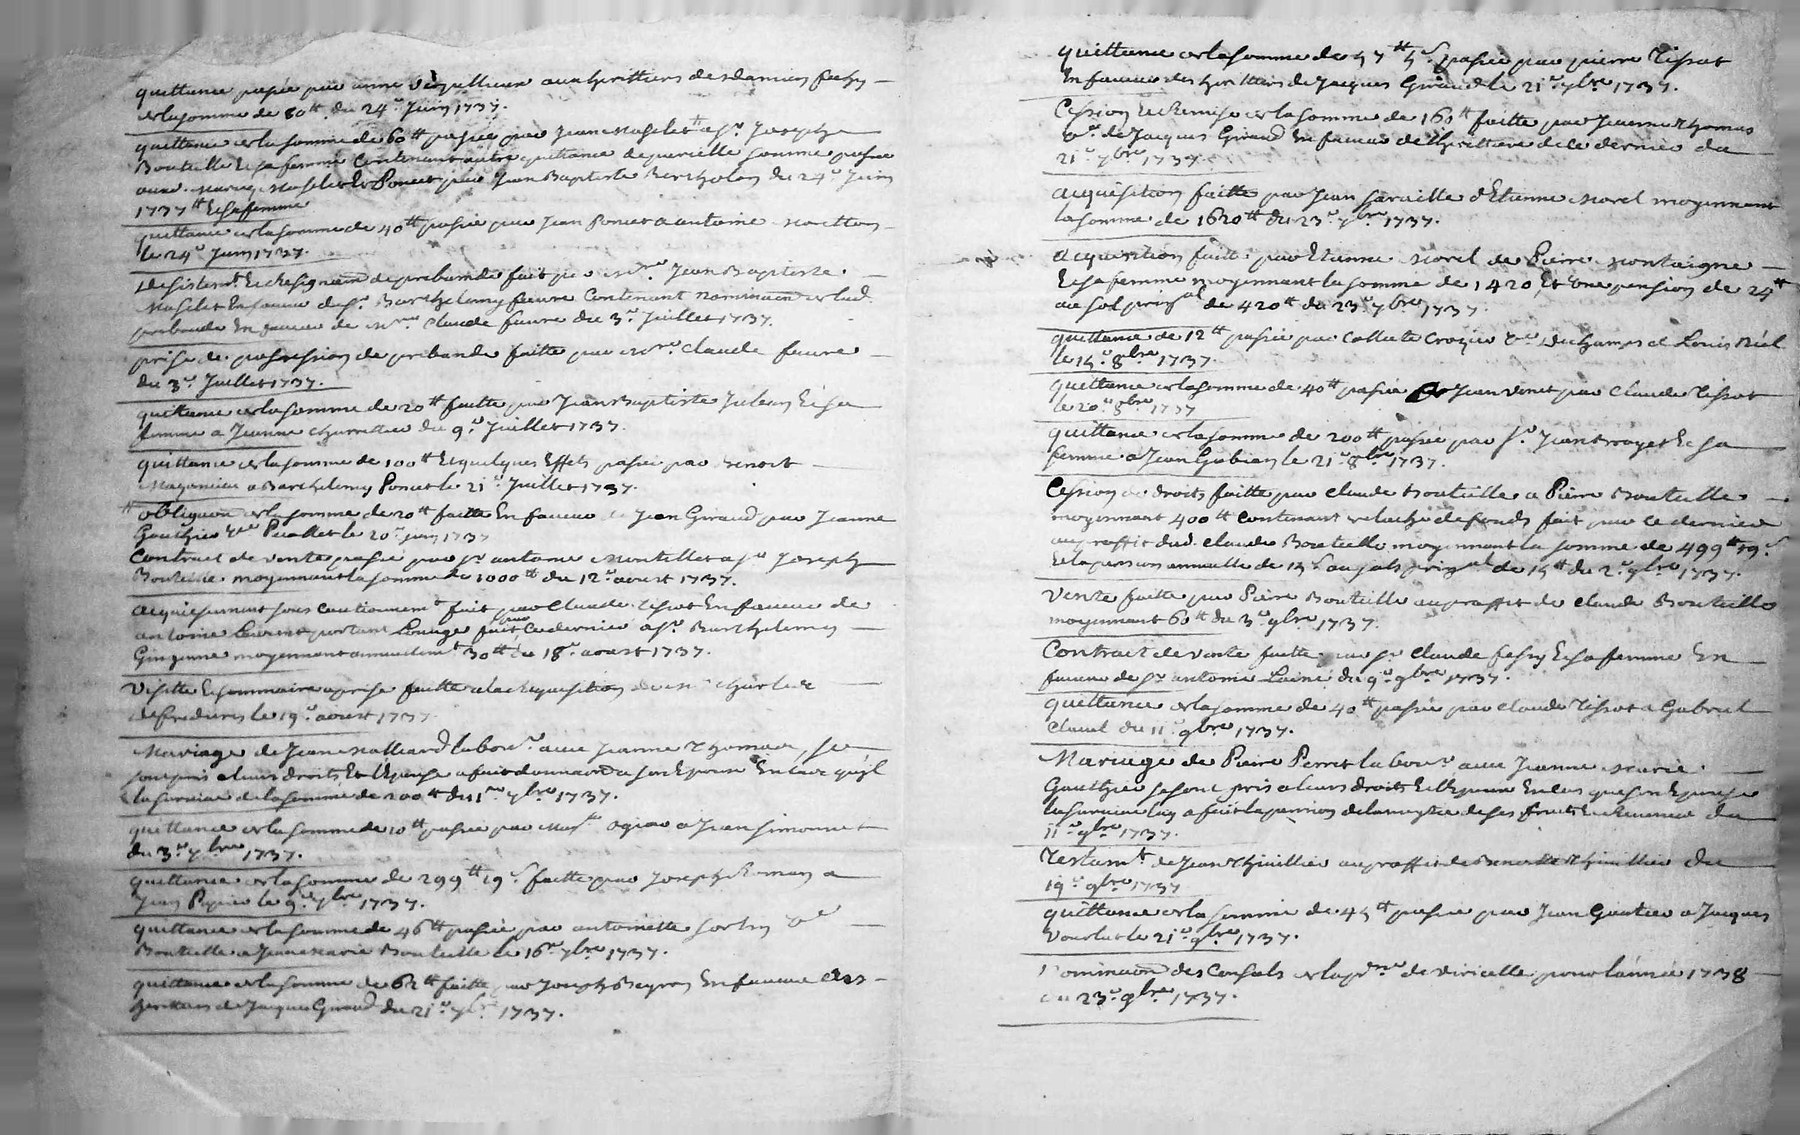 quittance passée par anne aux heritiers de damien fessy
de la somme de 80ᵗᵗ du 24ᵉ Juin 1737.
quittance de la somme de 60ᵗᵗ passée par Jean Maselet a Sʳ Joseph
Bouteille et sa femme contenant autre quittance de pareille somme passée
aux Maselet et Poncet par Jean Baptiste Bertholon du 24ᵉ Juin
1737 ᵗᵗ et sa femme
quittance de la somme de 40ᵗᵗ passée par Jean Poncet a antoine
le 24ᵉ Juin 1737.
desistemᵗ et resignaõn de prebande fait par Mᵉ Jean Baptiste
Maselet en faveur de Sʳ Barthelemy favre contenant nominaõn de lad.
prebande en faveur de Mʳᵉ Claude favre du 3ᵉ Juillet 1737.
prise de possession de prebande faitte par Mʳᵉ Claude favre
du 3ᵉ Juillet 1737.
quittance de la somme de 20ᵗᵗ faitte par Jean Baptiste et sa
femme a Jeanne charretier du 9ᵉ Juillet 1737.
quittance de la somme de 100ᵗᵗ et quelques effets passée par benoit
a Barthelemy Poncet le 21ᵉ Juillet 1737.
ᵗᵗ obligaõn de la somme de 20ᵗᵗ faitte en faveur de Jean Giraud par Jeanne
Gauthier vᵉ le 20ᵉ juin 1737
Contract de vente passé par Sʳ antoine Montillet a Sʳ Joseph
Bouteille moyennant la somme de 1000ᵗᵗ du 12ᵉ aoust 1737.
acquiessement sous cautionnemᵗ fait par Claude tissot en faveur de
antoine Laurent portant Louage fait par ce dernier a Sʳ Barthelemy
moyennant annuellemᵗ 30ᵗᵗ du 18ᵉ aoust 1737.
Visitte et sommaire aprise faitte a la requisition de Mʳ charles
le 19ᵉ aoust 1737.
Mariage de Jean Malliard labouʳ avec Jeanne Thomas, se
sont pris a leurs droits et l'Epouse a fait donnaõn a son Epoux en cas qu'il
la survive de la somme de 200ᵗᵗ du 1ᵉʳ 7bre 1737.
quittance de la somme de 10ᵗᵗ passée par ogier a Jean Simonnet
du 3ᵉ 7bre 1737.
quittance de la somme de 299ᵗᵗ 19ˢ faitte par Joseph Roman a
Jean le 9ᵉ 7bre 1737.
quittance de la somme de 46ᵗᵗ passée par antoinette vᵉ
Bouteille a Jean Marie Bouteille le 16ᵉ 7bre 1737.
quittance de la somme de faitte par Joseph Peyron en faveur des
heritiers de Jacques Giraud du 21ᵉ 7bre 1737.
quittance de la somme de 57ᵗᵗ 5ˢ passée par pierre Tissot
en faveur des heritiers de Jacques Giraud le 21ᵉ 7bre 1737.
Cession et Remise de la somme de 160ᵗᵗ faitte par Jeanne thomas
vᵉ de Jacques Giraud en faveur de l'heritiere de ce dernier du
21ᵉ 7bre 1737.
acquisition faitte par Jean d'Etienne Morel moyennant
la somme de 1620ᵗᵗ du 23ᵉ 7bre 1737.
acquisition faitte par Etienne Morel de Pierre Montaigne
et sa femme moyennant la somme de 1420, et une pension de 24ᵗᵗ
au sol prinˡ de 420ᵗᵗ du 23ᵉ 7bre 1737.
quittance de 12ᵗᵗ passée par Collette Crozier vᵉ duchamps a Louis Réal
le 15ᵉ 8bre 1737.
quittance de la somme de 40ᵗᵗ passée a Jean venet par Claude Tissot
le 20ᵉ 8bre 1737
quittance de la somme de 200ᵗᵗ passée par Sʳ Jean broyet et sa
femme a Jean Gubian le 21ᵉ 8bre 1737.
Cession de droits faitte par Claude bouteille a Pierre Bouteille
moyennant 400ᵗᵗ contenant relache de fonds fait par ce dernier
au proffit dud. Claude Bouteille moyennant la somme de 499ᵗᵗ 19ˢ
et la pension annuelle de 15ˢ au sols prinˡ de 15ᵗᵗ du 2ᵉ 9bre 1737.
Vente faitte par Pierre Bouteille au proffit de Claude Bouteille
moyennant 60ᵗᵗ du 3ᵉ 9bre 1737.
Contract de vente faitte par Sʳ Claude fessy et sa femme en
faveur de Sʳ antoine Laine du 9ᵉ 9bre 1737.
quittance de la somme de 40ᵗᵗ passée par claude Tissot a Gabriel
Clavel du 11ᵉ 9bre 1737.
Mariage de Pierre Perret labouʳ avec Jeanne Marie
Gauthier se sont pris a leurs droits et l'Epoux en cas que son Epouse
la survive luy a fait la pension de la moytié de ses fruits et Revenus du
11ᵉ 9bre 1737.
Testamᵗ de Jean Thivillier au proffit de Benoitte Thivillier du
19ᵉ 9bre 1737
quittance de la somme de 45ᵗᵗ passée par Jean Gautier a Jacques
le 21ᵉ 9bre 1737.
Nominaõn des Consuls de la psse de viricelle pour l'année 1738
du 23ᵉ 9bre 1737.